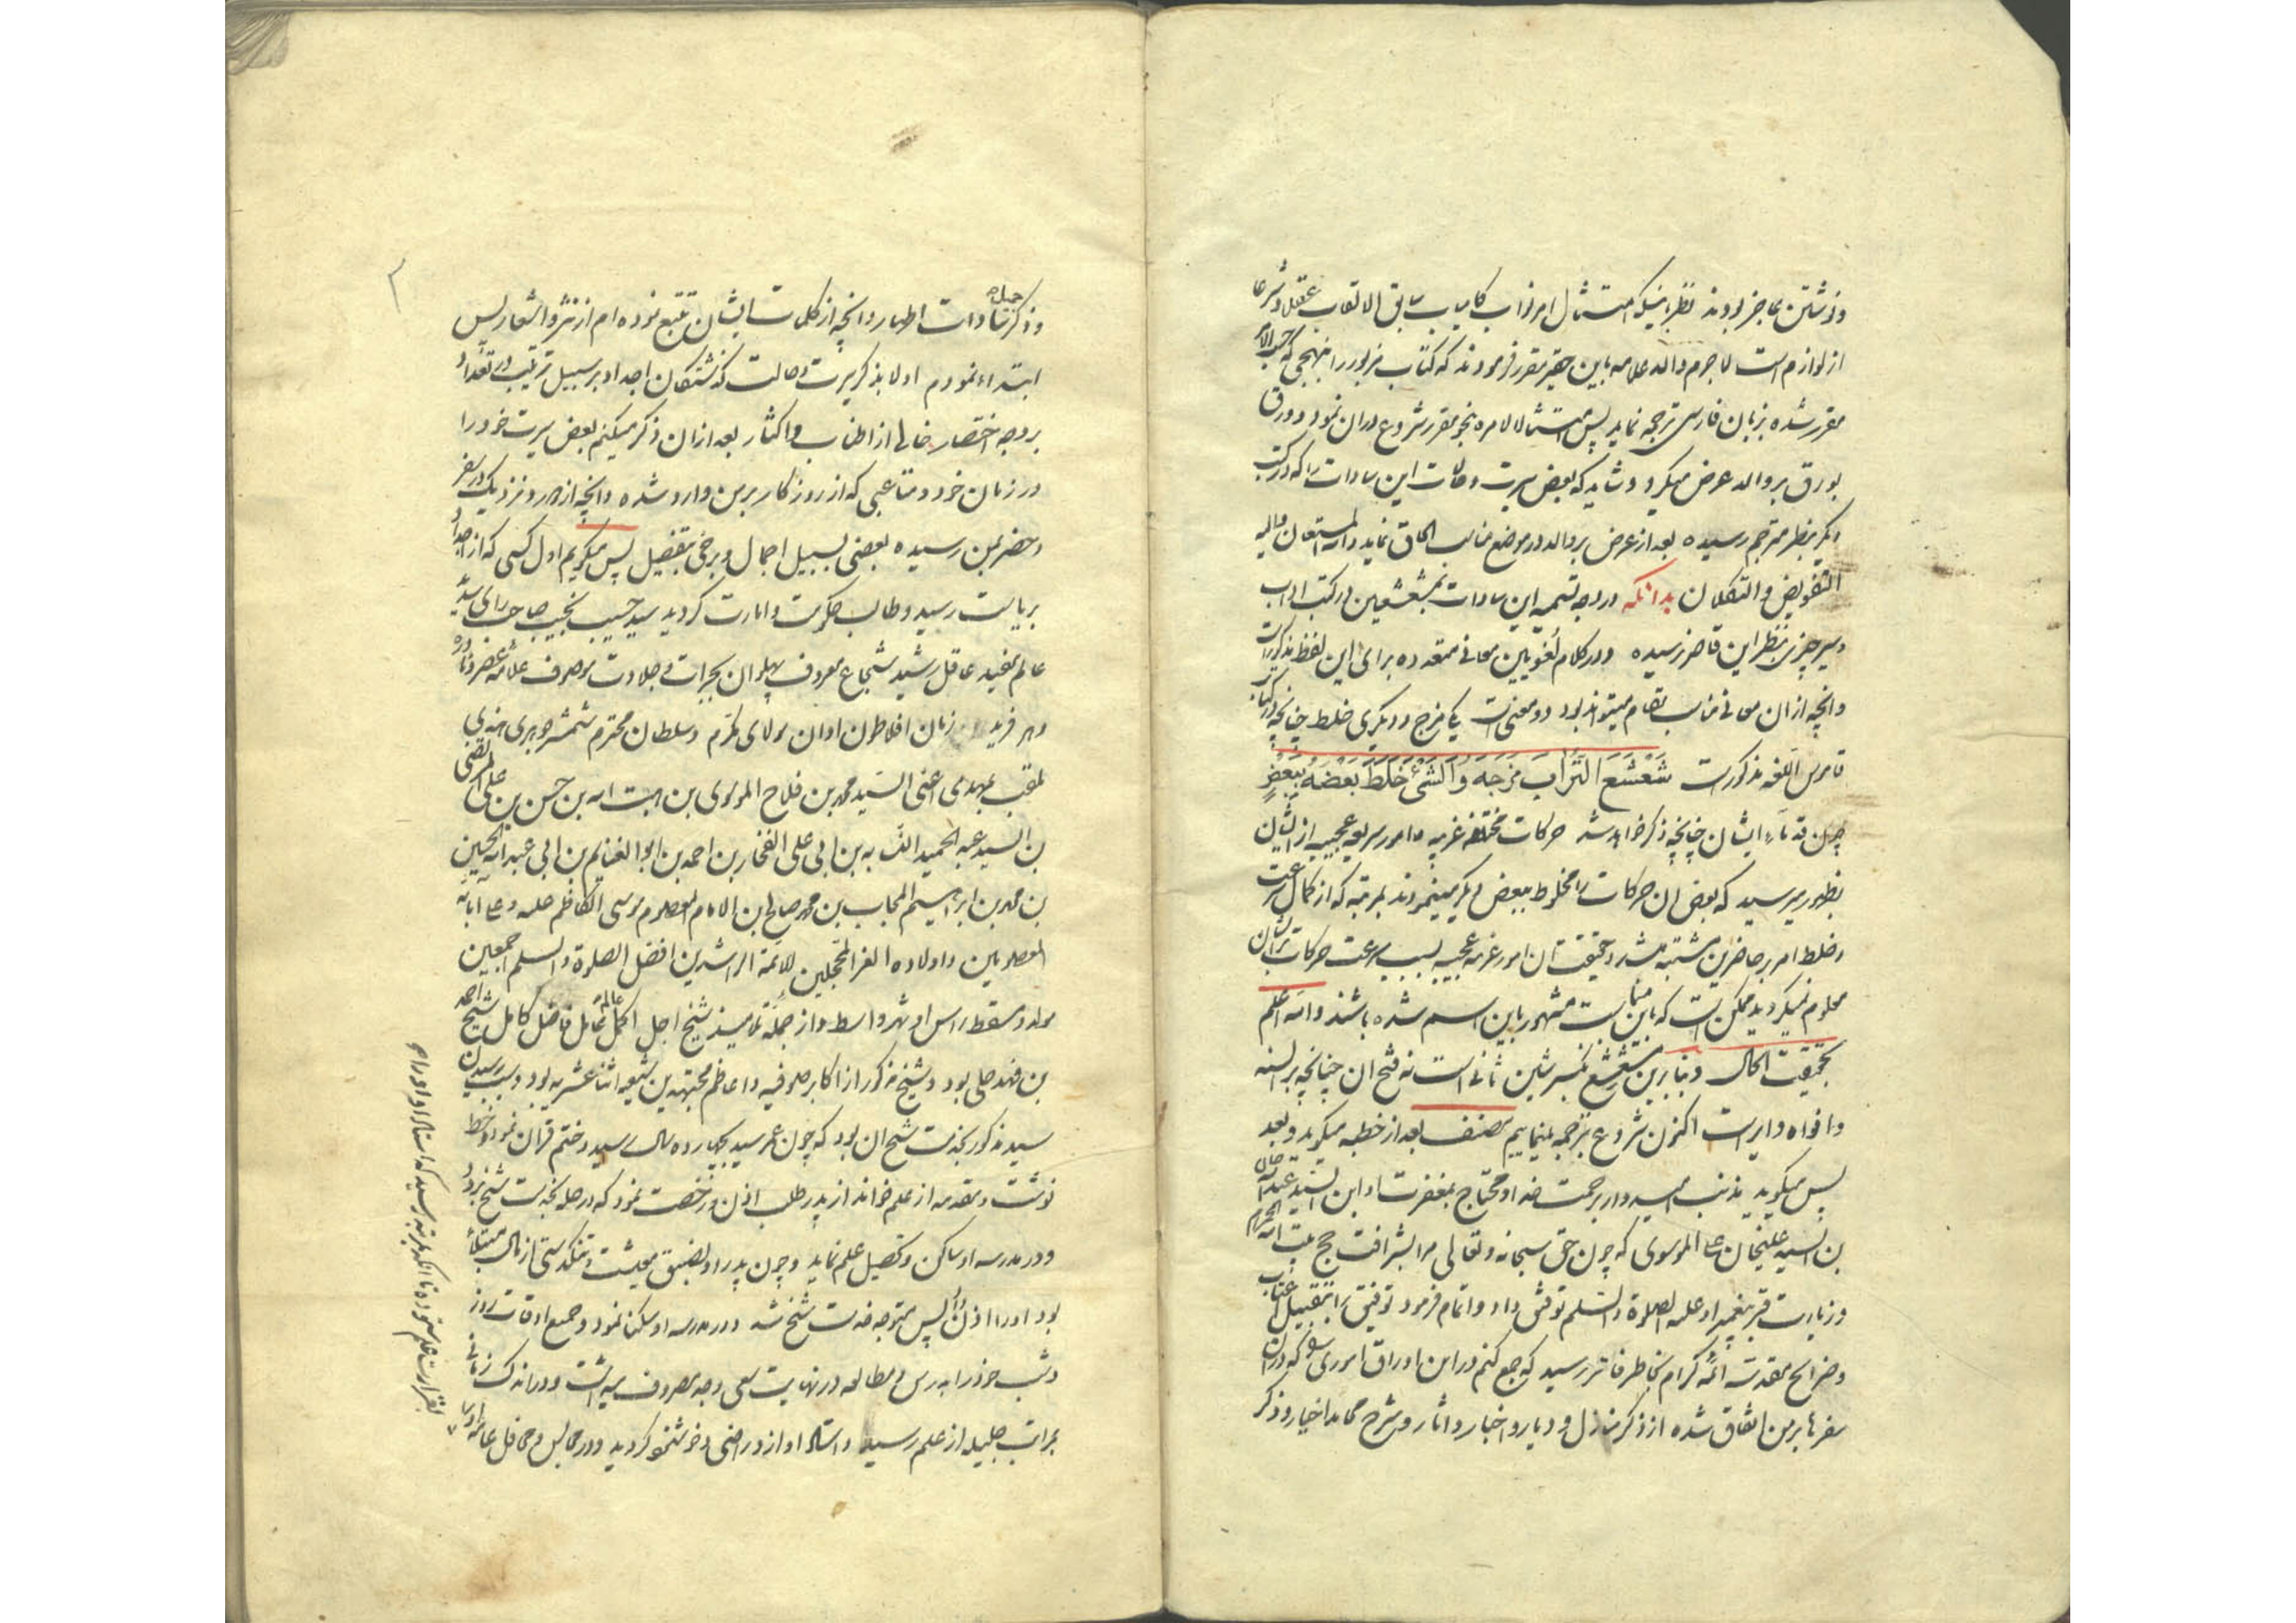 ونوشتن عاجز بودند نظر باینکه امتثال امر نواب کامیاب سابق الالقاب عقلا وشرعا
از لوازم است لاجرم والد علامه باین حقیر مقرر فرمودند که کتاب مزبور را بنهجی که حسب الامر
مقرر شده بزبان فارسی ترجمه نماید پس امتثالا لامره بنحو مقرر شروع دران نمود و ورق
بورق بر والد عرض میکرد و شاید که بعض سیرت وحالات این سادات را که در کتب
دیگر بنظر مترجم رسیده بعد از عرض بر والد در موضع مناسب الحاق نماید والله المستعان والیه
التفویض والتکلان بدانکه در وجه تسمیه این سادات بمشعشعین در کتب انساب
وسیر چیزی بنظر این قاصر نرسیده ودر کلام لغویین معانی متعدده برای این لفظ مذکورست
وانچه ازان معانی مناسب مقام میتواند بود دو معنیست یکی مزج ودیگری خلط چنانچه در کتاب
قاموس اللغه مذکورست شَعْشَعَ الشَّرابَ مَزَجَه وَالشَّیْءَ خَلَطَ بَعْضَهُ بِبَعْضٍ
چون قدماء ایشان چنانچه ذکر خواهد شد حرکات مختلفه غریبه وامور سریعه عجیبه از ایشان
بظهور میرسید که بعض ان حرکات را مخلوط ببعض دیگر مینمودند بمرتبه که از کمال سرعت
وخلط امر بر حاضرین مشتبه میشد وحقیقت ان امور غریبه عجیبه بسبب سرعت حرکات بر ایشان
معلوم نمیگردید ممکن است که باین مناسبت مشهور باین اسم شده باشند والله اعلم
بحقیقت الحال وبنابرین مشعشع بکسر شین ثانی است نه فتح ان چنانچه بر السنه
وافواه دایر است اکنون شروع بترجمه مینماییم مصنف بعد از خطبه میگوید وبعد
پس میگوید مذنب امیدوار برحمت خدا ومحتاج بمغفرت او ابن السید عبدالله خان
بن السید علیخان الموسوی که چون حق سبحانه وتعالی مرا بشرافت حج بیت الله الحرام
وزیارت قبر پیغمبر او علیه الصلوة والسلم توفیق داد واتمام فرمود توفیق را بتقبیل اعتاب
وضرایح مقدسه ائمه کرام بخاطر فاتر رسید که جمع کنم در این اوراق اموری را که دران
سفرها بر من اتفاق شده از ذکر منازل ودیار واخبار واثار وشرح محامد اخیار وذکر
وذکر سادات اطهار وانچه از کلمات ایشان تتبع نموده ام از نثر واشعار پس
ابتداء نمودم اولا بذکر سیرت وحالت گذشتگان اجداد بر سبیل ترتیب در تعداد
بر وجه اختصار خالی از اطناب واکثار بعد ازان ذکر میکنم بعض سیرت خود را
در زمان خود ومتاعبی که از روزکار بر من وارد شده وانچه از دور ونزدیک در سفر
وحضر بمن رسیده بعضی بسبیل اجمال وبرخی بتفصیل پس میگویم اول کسی که از اجداد
بریاست رسید وطالب حکومت وامارت کردید سید حسیب نجیب صاحب رای سدید
عالم مفید عاقل رشید شجاع معروف پهلوان بجرات وجلادت موصوف علامه عصر ونادره
دهر فرید زمان افلاطون اوان مولای مکرم وسلطان محترم
ملقب بمهدی اعنی السید محمد بن فلاح الموسوی بن هبت الله بن حسن بن علی المرتضی
بن السید عبد الحمید النسابه بن ابی علی الفخار بن احمد بن ابو الغنایم بن ابی عبد الله الحسین
بن محمد بن ابراهیم المجاب بن محمد صالح ابن الامام المعصوم موسی الکاظم علیه وعلی آبائه
المعصومین واولاده الغر المحجلین الائمة الراشدین افضل الصلوة والسلم اجمعین
مولد ومسقط راس او شهر واسط واز جمله تلامیذ شیخ اجل اکمل عالم عامل فاضل کامل شیخ احمد
بن فهد حلی بود وشیخ مذکور از اکابر صوفیه واعاظم مجتهدین شیعه اثنا عشریه بود وسبب رسیدن
سید مذکور بخدمت شیخ ان بود که چون عمر سید بچهارده سال رسید وختم قران نمود وخط
نوشت ومقدمه از علم خواند از پدر طلب اذن ورخصت نمود که در حله بخدمت شیخ برود
ودر مدرسه او ساکن وتحصیل علم نماید وچون پدر او بضیق معیشت وتنگدستی از مال مبتلا
بود اورا اذن داد پس متوجه خدمت شیخ شد ودر مدرسه او سکنا نمود وجمیع اوقات روز
وشب خود را بدرس ومطالعه در نهایت سعی وجد مصروف میداشت ودر اندک زمانی
بمراتب جلیله از علم رسید واستاد او ازو راضی وخوشنود کردید ودر مجالس ومحافل عامه او را
بقرارت علم ستوده تا انکه بمرتبه رسید که استاد او اورا در